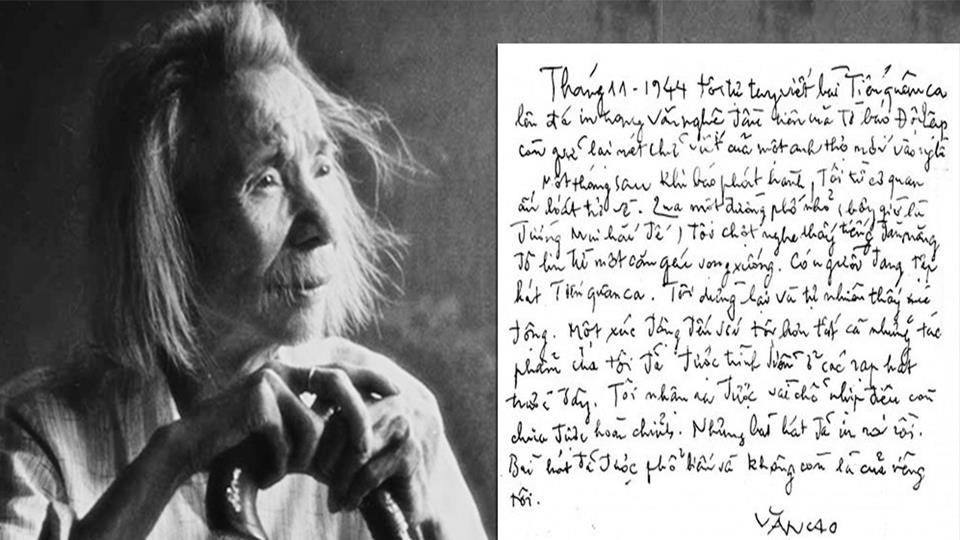 Tháng 11-1944 tôi tự tay viết bài Tiến quân ca
lên đá in trang văn nghệ đầu tiên của tờ báo Độc Lập
còn giữ lại nét chữ viết của một anh thợ mới vào nghề
Một tháng sau khi báo phát hành, Tôi từ cơ quan
ấn loát trở về. Qua một đường phố nhỏ (bây giờ là
Đường Mai hắc Đế) tôi chợt nghe thấy tiếng đàn măng
đô lin từ một căn gác vọng xuống. Có người đang tập
hát Tiến quân ca. Tôi dừng lại và tự nhiên thấy xúc
động. Một xúc động đến với tôi hơn tất cả những tác
phẩm của tôi đã được trình diễn ở các rạp hát
trước đây. Tôi nhận ra được vài chỗ nhịp điệu còn
chưa được hoàn chỉnh. Nhưng bài hát đã in ra rồi.
Bài hát đã được phổ biến và không còn là của riêng
tôi.
VĂN CAO